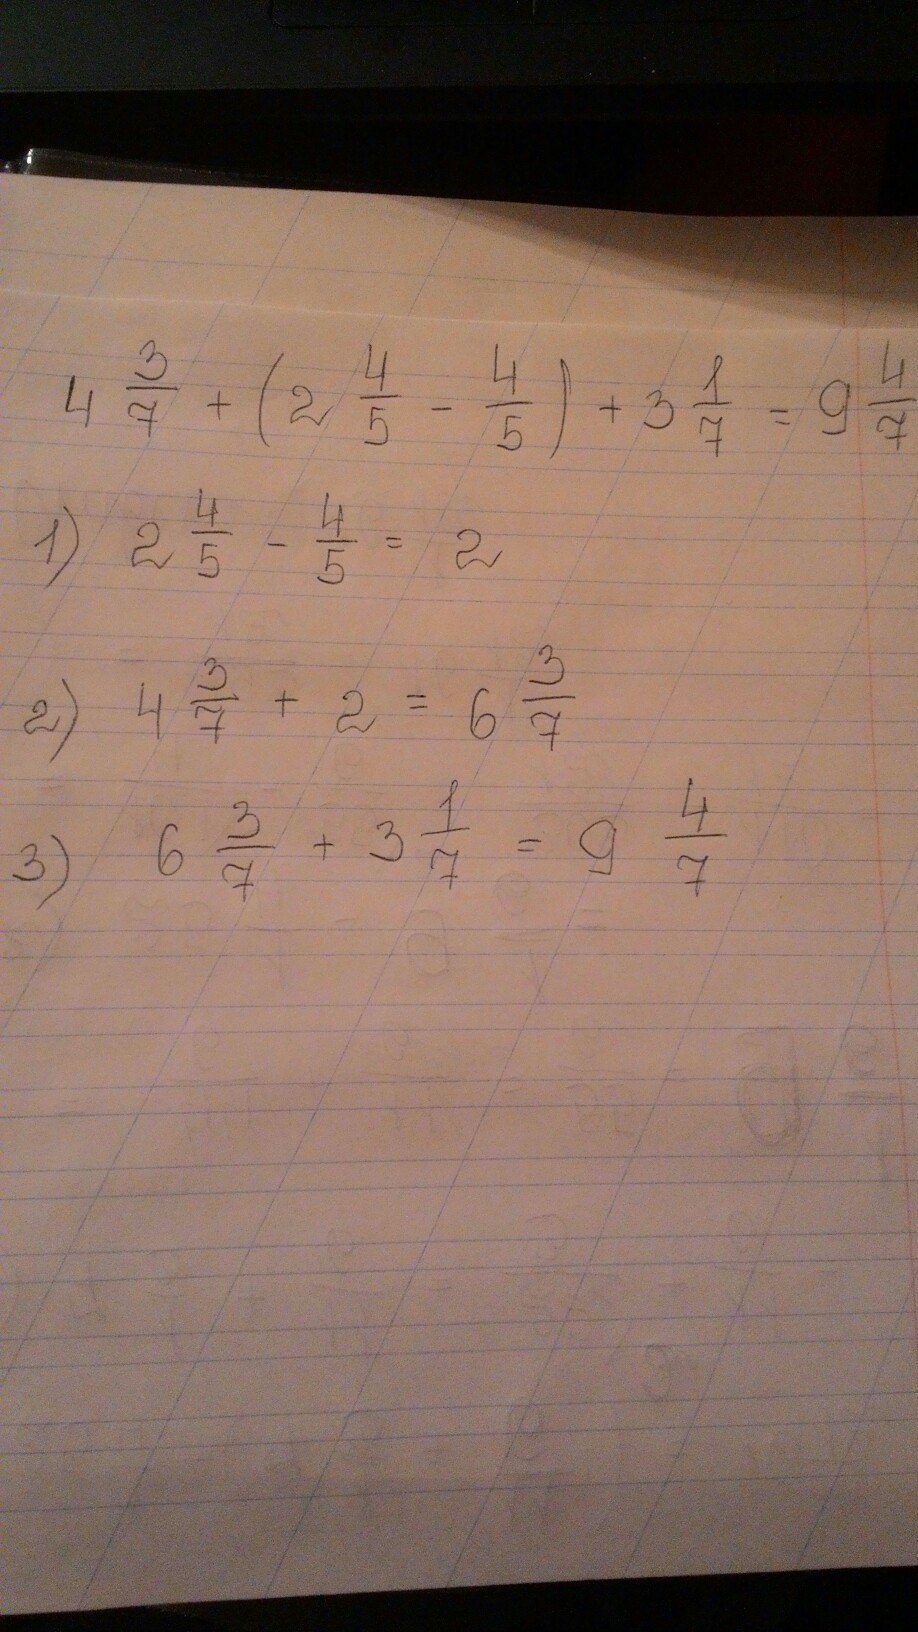 4 3/7 + (2 4/5 - 4/5) + 3 1/7 = 9 4/7
1) 2 4/5 - 4/5 = 2
2) 4 3/7 + 2 = 6 3/7
3) 6 3/7 + 3 1/7 = 9 4/7